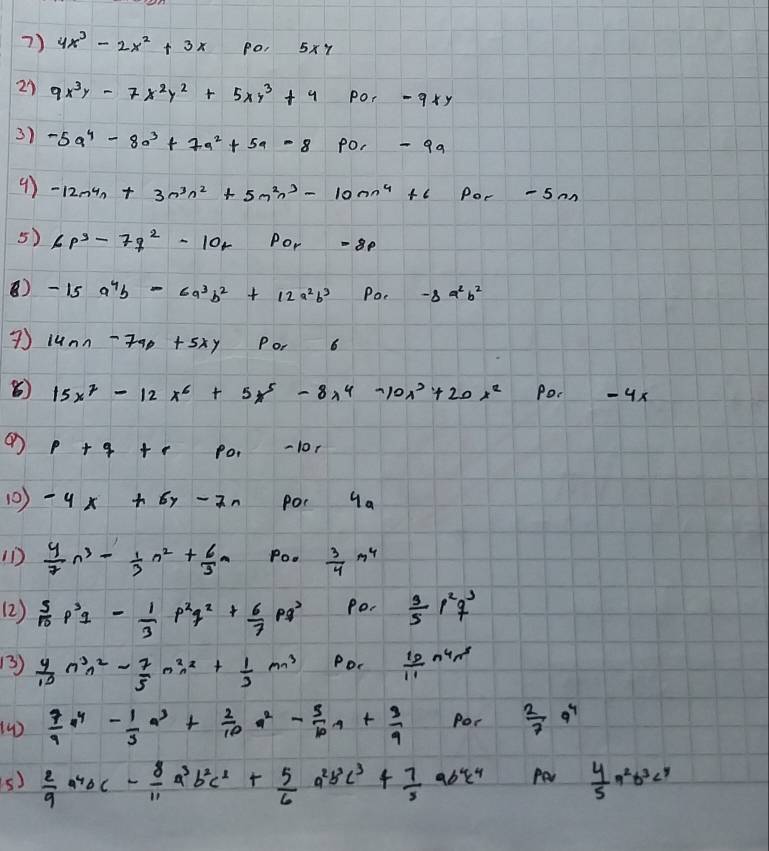 1) 4x³ - 2x² + 3x por 5xy
2) 9x³y - 7x²y² + 5xy³ + 4 por -9xy
3) -5a⁴ - 8a³ + 7a² + 5a - 8 por -9a
4) -12m⁴n + 3m³n² + 5m²n³ - 10mn⁴ + 6 Por -5mn
5) 6p³ - 7q² - 10r Por -8p
6) -15 a⁴b - 6a³b² + 12a²b³ Por -8 a²b²
7) 14mn - 7ap + 5xy Por 6
8) 15x⁷ - 12 x⁶ + 5x⁵ - 8x⁴ - 10x³ + 20x² Por -4x
9) p + q + r Por -10r
10) -4x + 6y - 7n por 4a
11) 4/7 n³ - 1/3 n² + 6/5 n Por 3/4 m⁴
12) 5/10 p³q - 1/3 p²q² + 6/7 pq³ Por 3/5 p²q³
13) 4/10 m³n² - 7/5 m²n² + 1/3 mn³ Por 10/11 m⁴n⁵
14) 7/9 a⁴ - 1/3 a³ + 2/10 a² - 5/10 a + 3/9 Por 2/7 a⁴
15) 2/9 a⁴bc - 8/11 a³b²c² + 5/6 a²b³c³ + 7/5 ab⁴c⁴ Por 4/5 a²b³c⁴